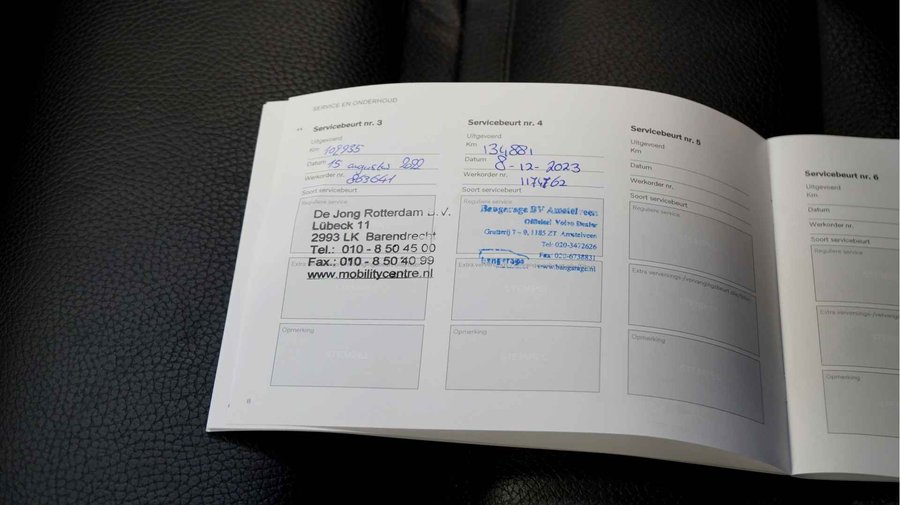 SERVICE EN ONDERHOUD
Servicebeurt nr. 3
Uitgevoerd
Km 109935
Datum 15 augustus 2022
Werkorder nr. 863641
Soort servicebeurt
Reguliere service
De Jong Rotterdam B.V.
Lübeck 11
2993 LK Barendrecht
Tel.: 010 - 8 50 45 00
Fax.: 010 - 8 50 40 99
www.mobilitycentre.nl
Extra
Opmerking
8
Servicebeurt nr. 4
Uitgevoerd
Km 134881
Datum 8-12-2023
Werkorder nr. 1174762
Soort servicebeurt
Reguliere service
Bangarage BV Amstelveen
Officieel Volvo Dealer
7 - 9, 1185 ZT Amstelveen
Tel: 020-3472626
Fax: 020-6738831
bangarage
www.bangarage.nl
Extra verversings-
Opmerking
Servicebeurt nr. 5
Uitgevoerd
Km
Datum
Werkorder nr.
Soort servicebeurt
Reguliere service
Extra verversings-/vervangingsbeurt
Opmerking
Servicebeurt nr. 6
Uitgevoerd
Km
Datum
Werkorder nr.
Soort servicebeurt
Reguliere service
Extra verversings-/vervang
Opmerking